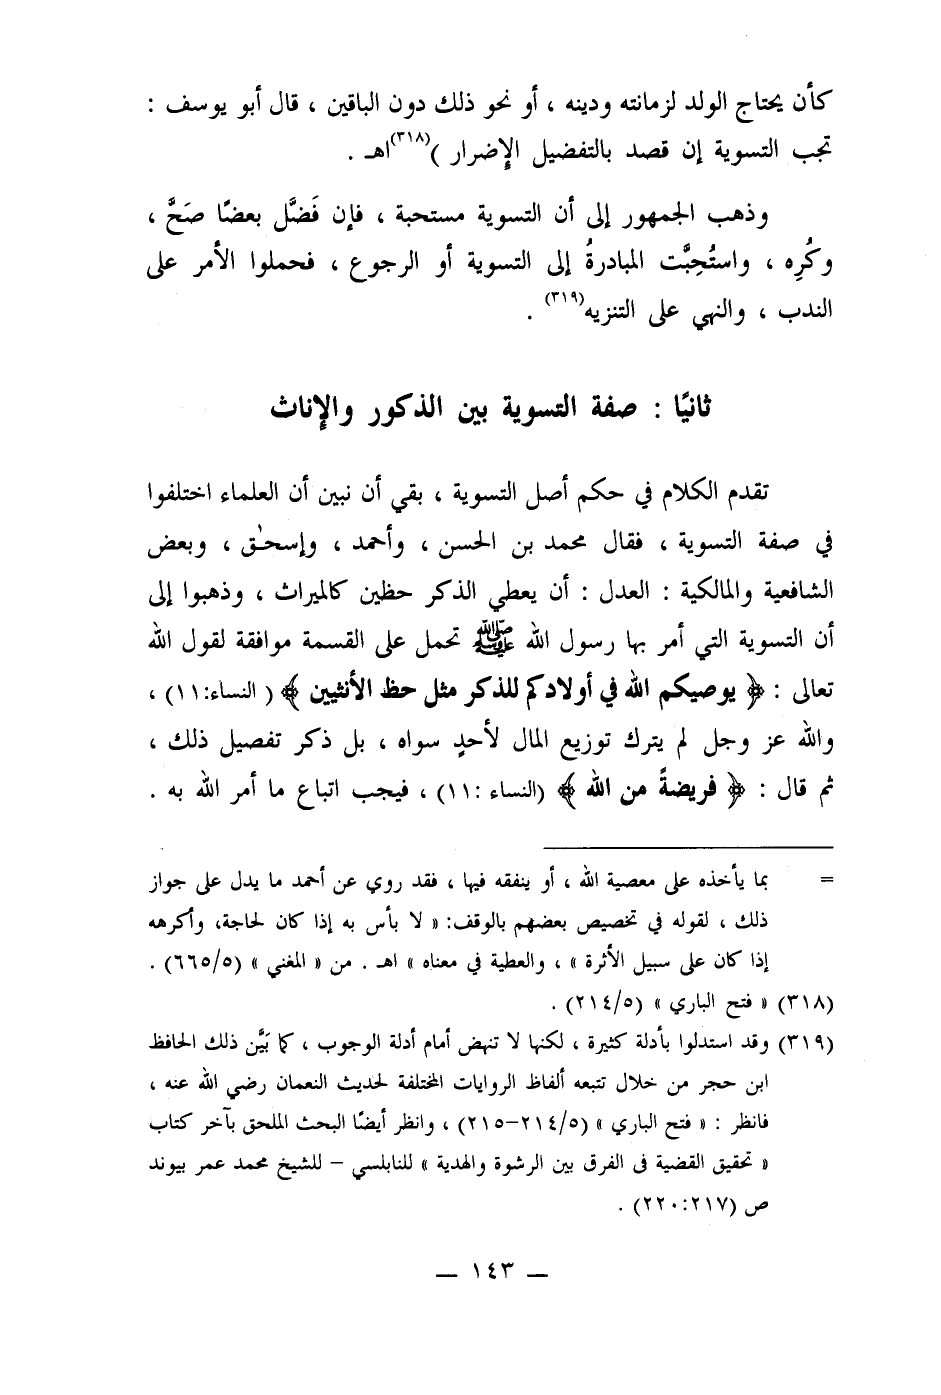 كأن يحتاج الولد لزمانته ودينه ، أو نحو ذلك دون الباقين ، قال أبو يوسف :
تجب التسوية إن قصد بالتفضيل الإضرار )(٣١٨)اهـ .
وذهب الجمهور إلى أن التسوية مستحبة ، فإن فَضَّل بعضًا صَحَّ ،
وكُرِه ، واستُحِبَّت المبادرةُ إلى التسوية أو الرجوع ، فحملوا الأمر على
الندب ، والنهي على التنزيه(٣١٩) .
ثانيًا : صفة التسوية بين الذكور والإناث
تقدم الكلام في حكم أصل التسوية ، بقي أن نبين أن العلماء اختلفوا
في صفة التسوية ، فقال محمد بن الحسن ، وأحمد ، وإسحٰق ، وبعض
الشافعية والمالكية : العدل : أن يعطي الذكر حظين كالميراث ، وذهبوا إلى
أن التسوية التي أمر بها رسول الله ﷺ تحمل على القسمة موافقة لقول الله
تعالى : ﴿ يوصيكم الله في أولادكم للذكر مثل حظ الأنثيين ﴾ ( النساء:١١) ،
والله عز وجل لم يترك توزيع المال لأحدٍ سواه ، بل ذكر تفصيل ذلك ،
ثم قال : ﴿ فريضةً من الله ﴾ (النساء :١١) ، فيجب اتباع ما أمر الله به .
= بما يأخذه على معصية الله ، أو ينفقه فيها ، فقد روي عن أحمد ما يدل على جواز
ذلك ، لقوله في تخصيص بعضهم بالوقف: « لا بأس به إذا كان لحاجة، وأكرهه
إذا كان على سبيل الأثرة » ، والعطية في معناه » اهـ . من « المغني » (٦٦٥/٥) .
(٣١٨) « فتح الباري » (٢١٤/٥) .
(٣١٩) وقد استدلوا بأدلة كثيرة ، لكنها لا تنهض أمام أدلة الوجوب ، كما بَيَّن ذلك الحافظ
ابن حجر من خلال تتبعه ألفاظ الروايات المختلفة لحديث النعمان رضي الله عنه ،
فانظر : « فتح الباري » (٢١٤/٥–٢١٥) ، وانظر أيضًا البحث الملحق بآخر كتاب
« تحقيق القضية في الفرق بين الرشوة والهدية » للنابلسي – للشيخ محمد عمر بيوند
ص (٢٢٠:٢١٧) .
— ١٤٣ —